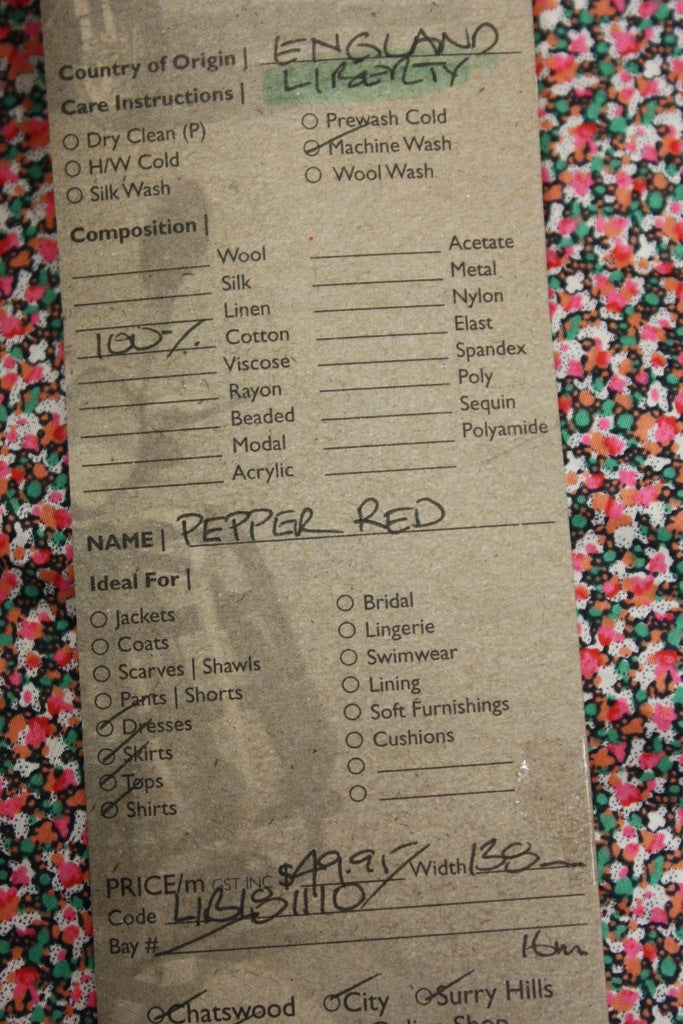 Country of Origin | ENGLAND
LIBERTY
Care Instructions |
Dry Clean (P)
H/W Cold
Silk Wash
Prewash Cold
Machine Wash
Wool Wash
Composition |
Wool
Silk
Linen
100% Cotton
Viscose
Rayon
Beaded
Modal
Acrylic
Acetate
Metal
Nylon
Elast
Spandex
Poly
Sequin
Polyamide
NAME | PEPPER RED
Ideal For |
Jackets
Coats
Scarves | Shawls
Pants | Shorts
Dresses
Skirts
Tops
Shirts
Bridal
Lingerie
Swimwear
Lining
Soft Furnishings
Cushions
PRICE/m GST INC $49.95 Width 138
Code
Bay #
Chatswood City Surry Hills
Shop